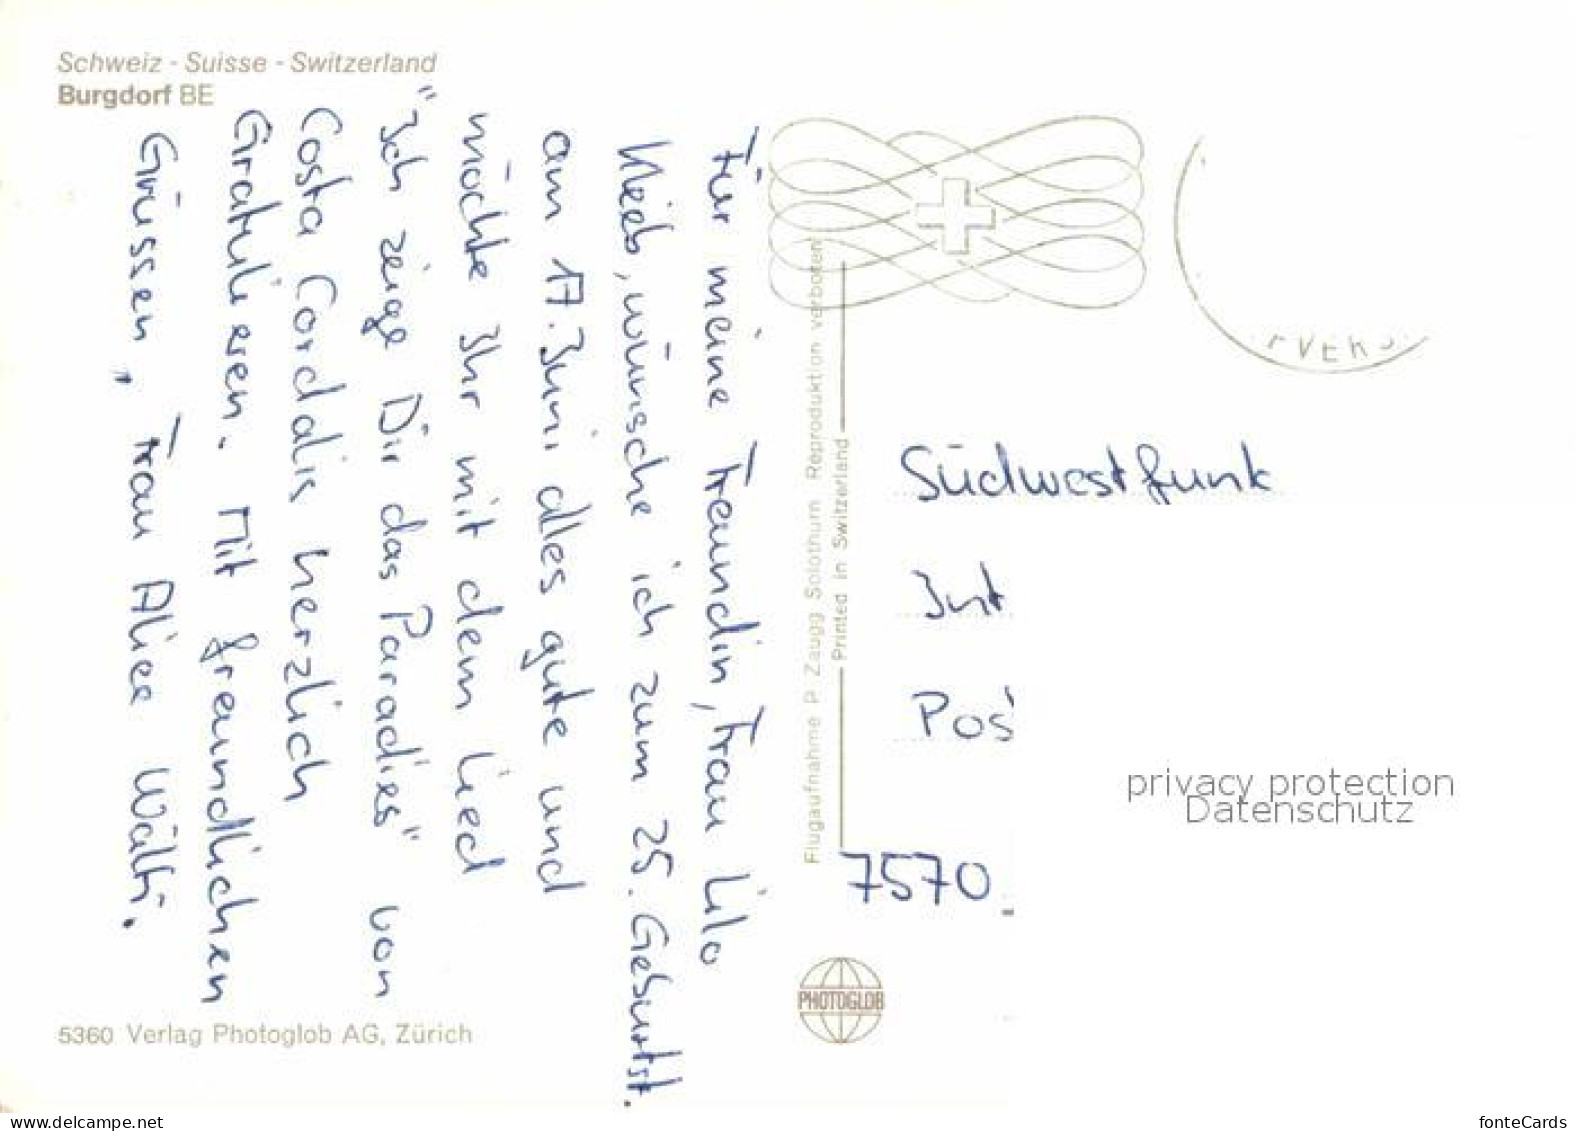 Schweiz - Suisse - Switzerland
Burgdorf BE
Für meine Freundin, Frau Lilo
Kleeb, wünsche ich zum 25. Geburtst.
am 17. Juni alles gute und
möchte Ihr mit dem Lied
"Ich zeige Dir das Paradies" von
Costa Cordalis herzlich
Gratulieren. Mit freundlichen
Grüssen, Frau Alice Wälti.
5360 Verlag Photoglob AG, Zürich
Flugaufnahme P. Zaugg Solothurn Reproduktion verboten
Printed in Switzerland
PHOTOGLOB
Südwestfunk
Int
Pos
7570
privacy protection
Datenschutz
www.delcampe.net
fonteCards